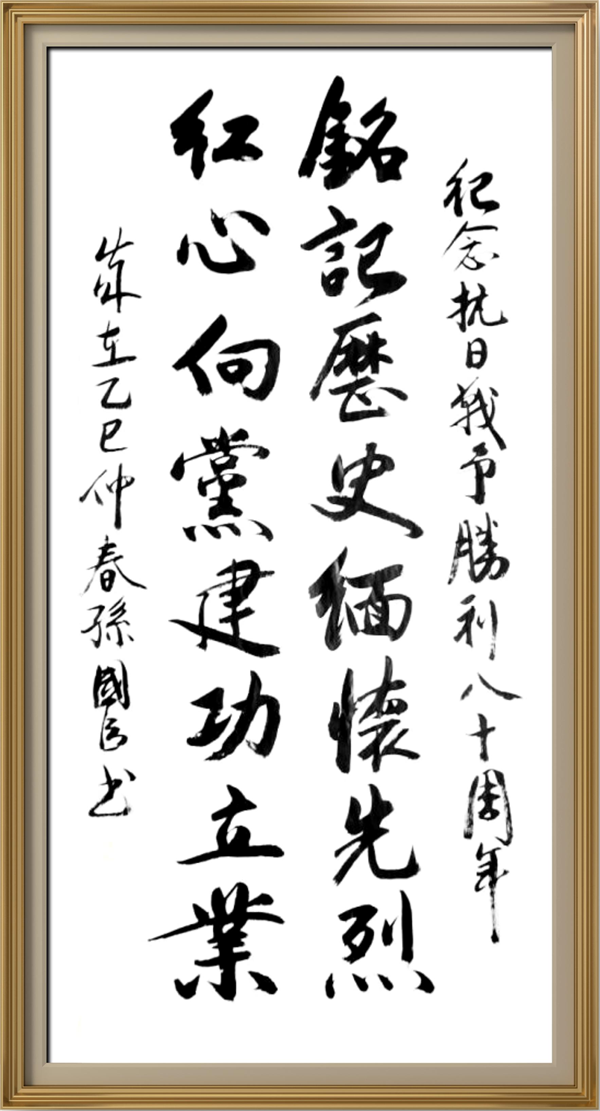 紀念抗日戰爭勝利八十周年
銘記歷史緬懷先烈
紅心向黨建功立業
歲在乙巳仲春孫國書